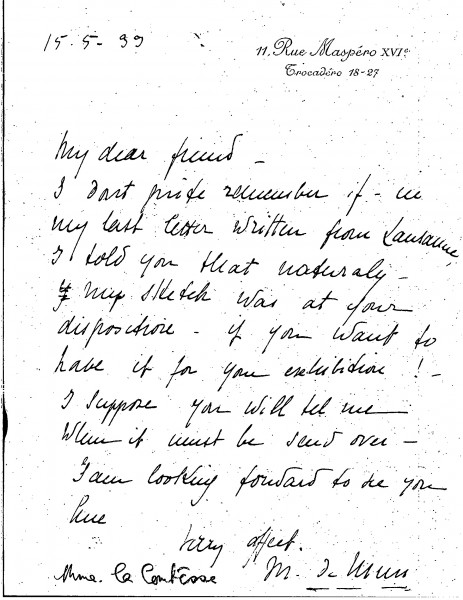 15-5-39
11, Rue Maspéro XVIe
Trocadéro 18-27
My dear friend -
I dont quite remember if - in
my last letter written from Lausanne,
I told you that naturaly -
my sketch was at your
disposition - if you want to
have it for your exhibition ! -
I suppose you will tel me
when it must be send over -
I am looking forward to see you
here
Very affect.
Mme. la Comtesse M. de